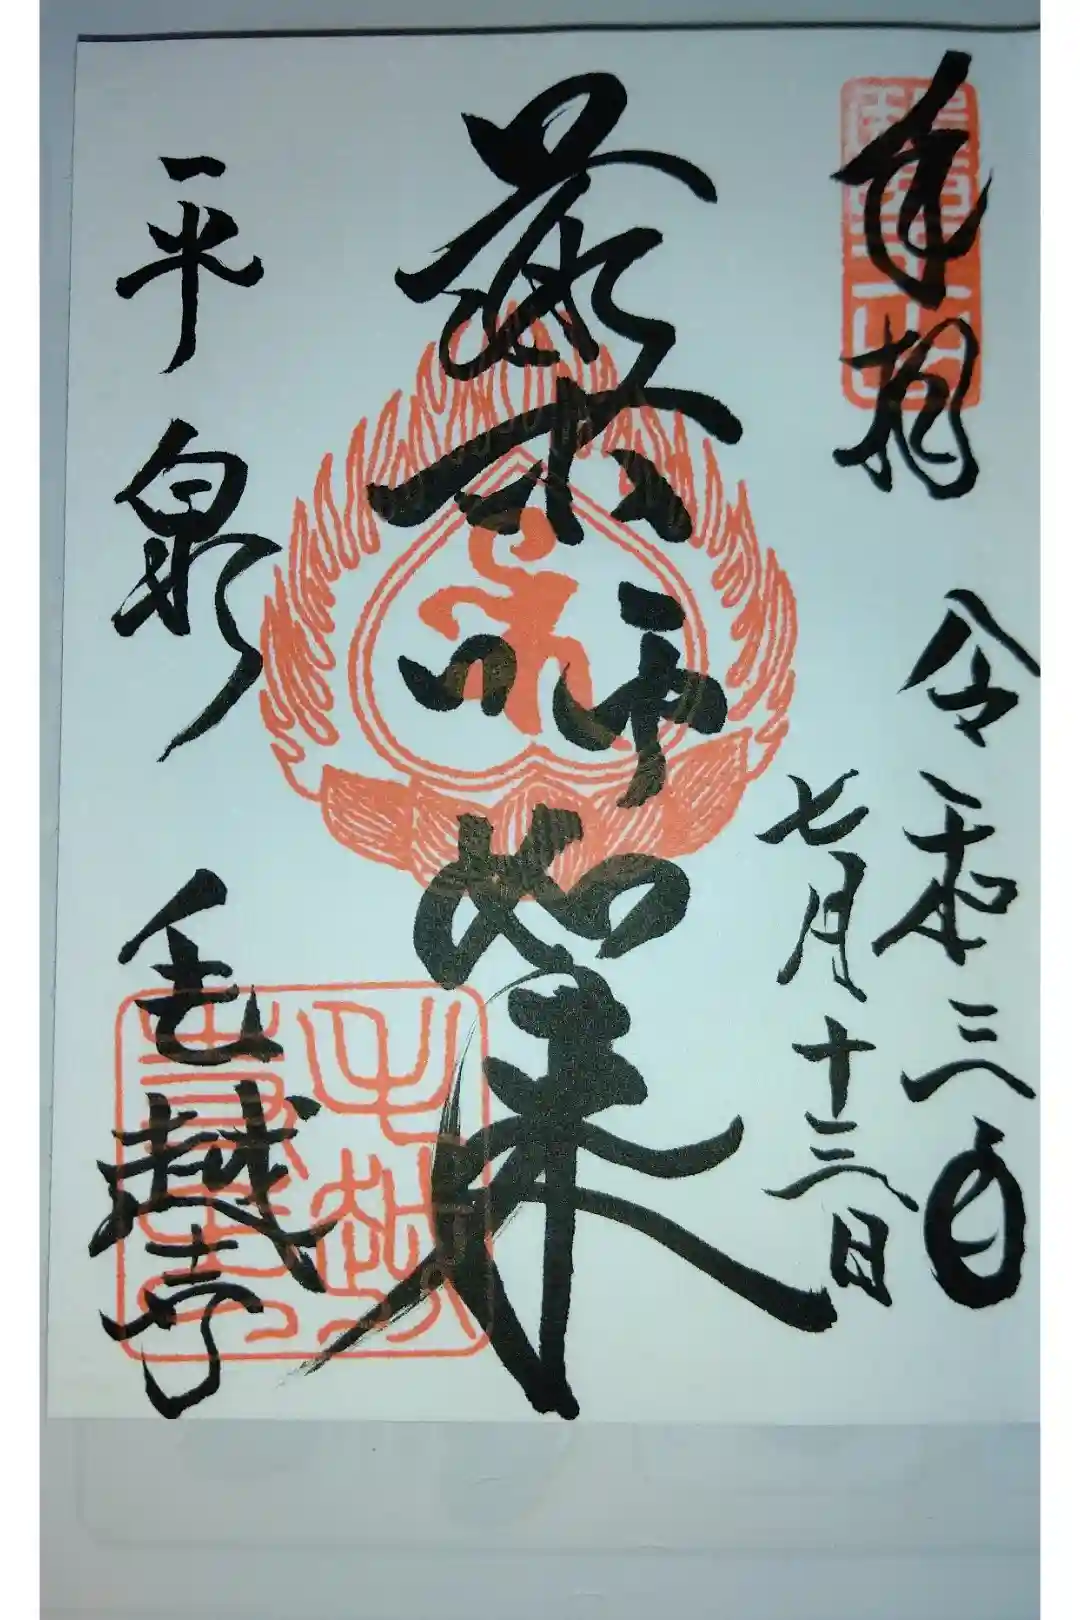 奉拝
令和三年
七月十三日
薬師如来
平泉
毛越寺
毛越寺